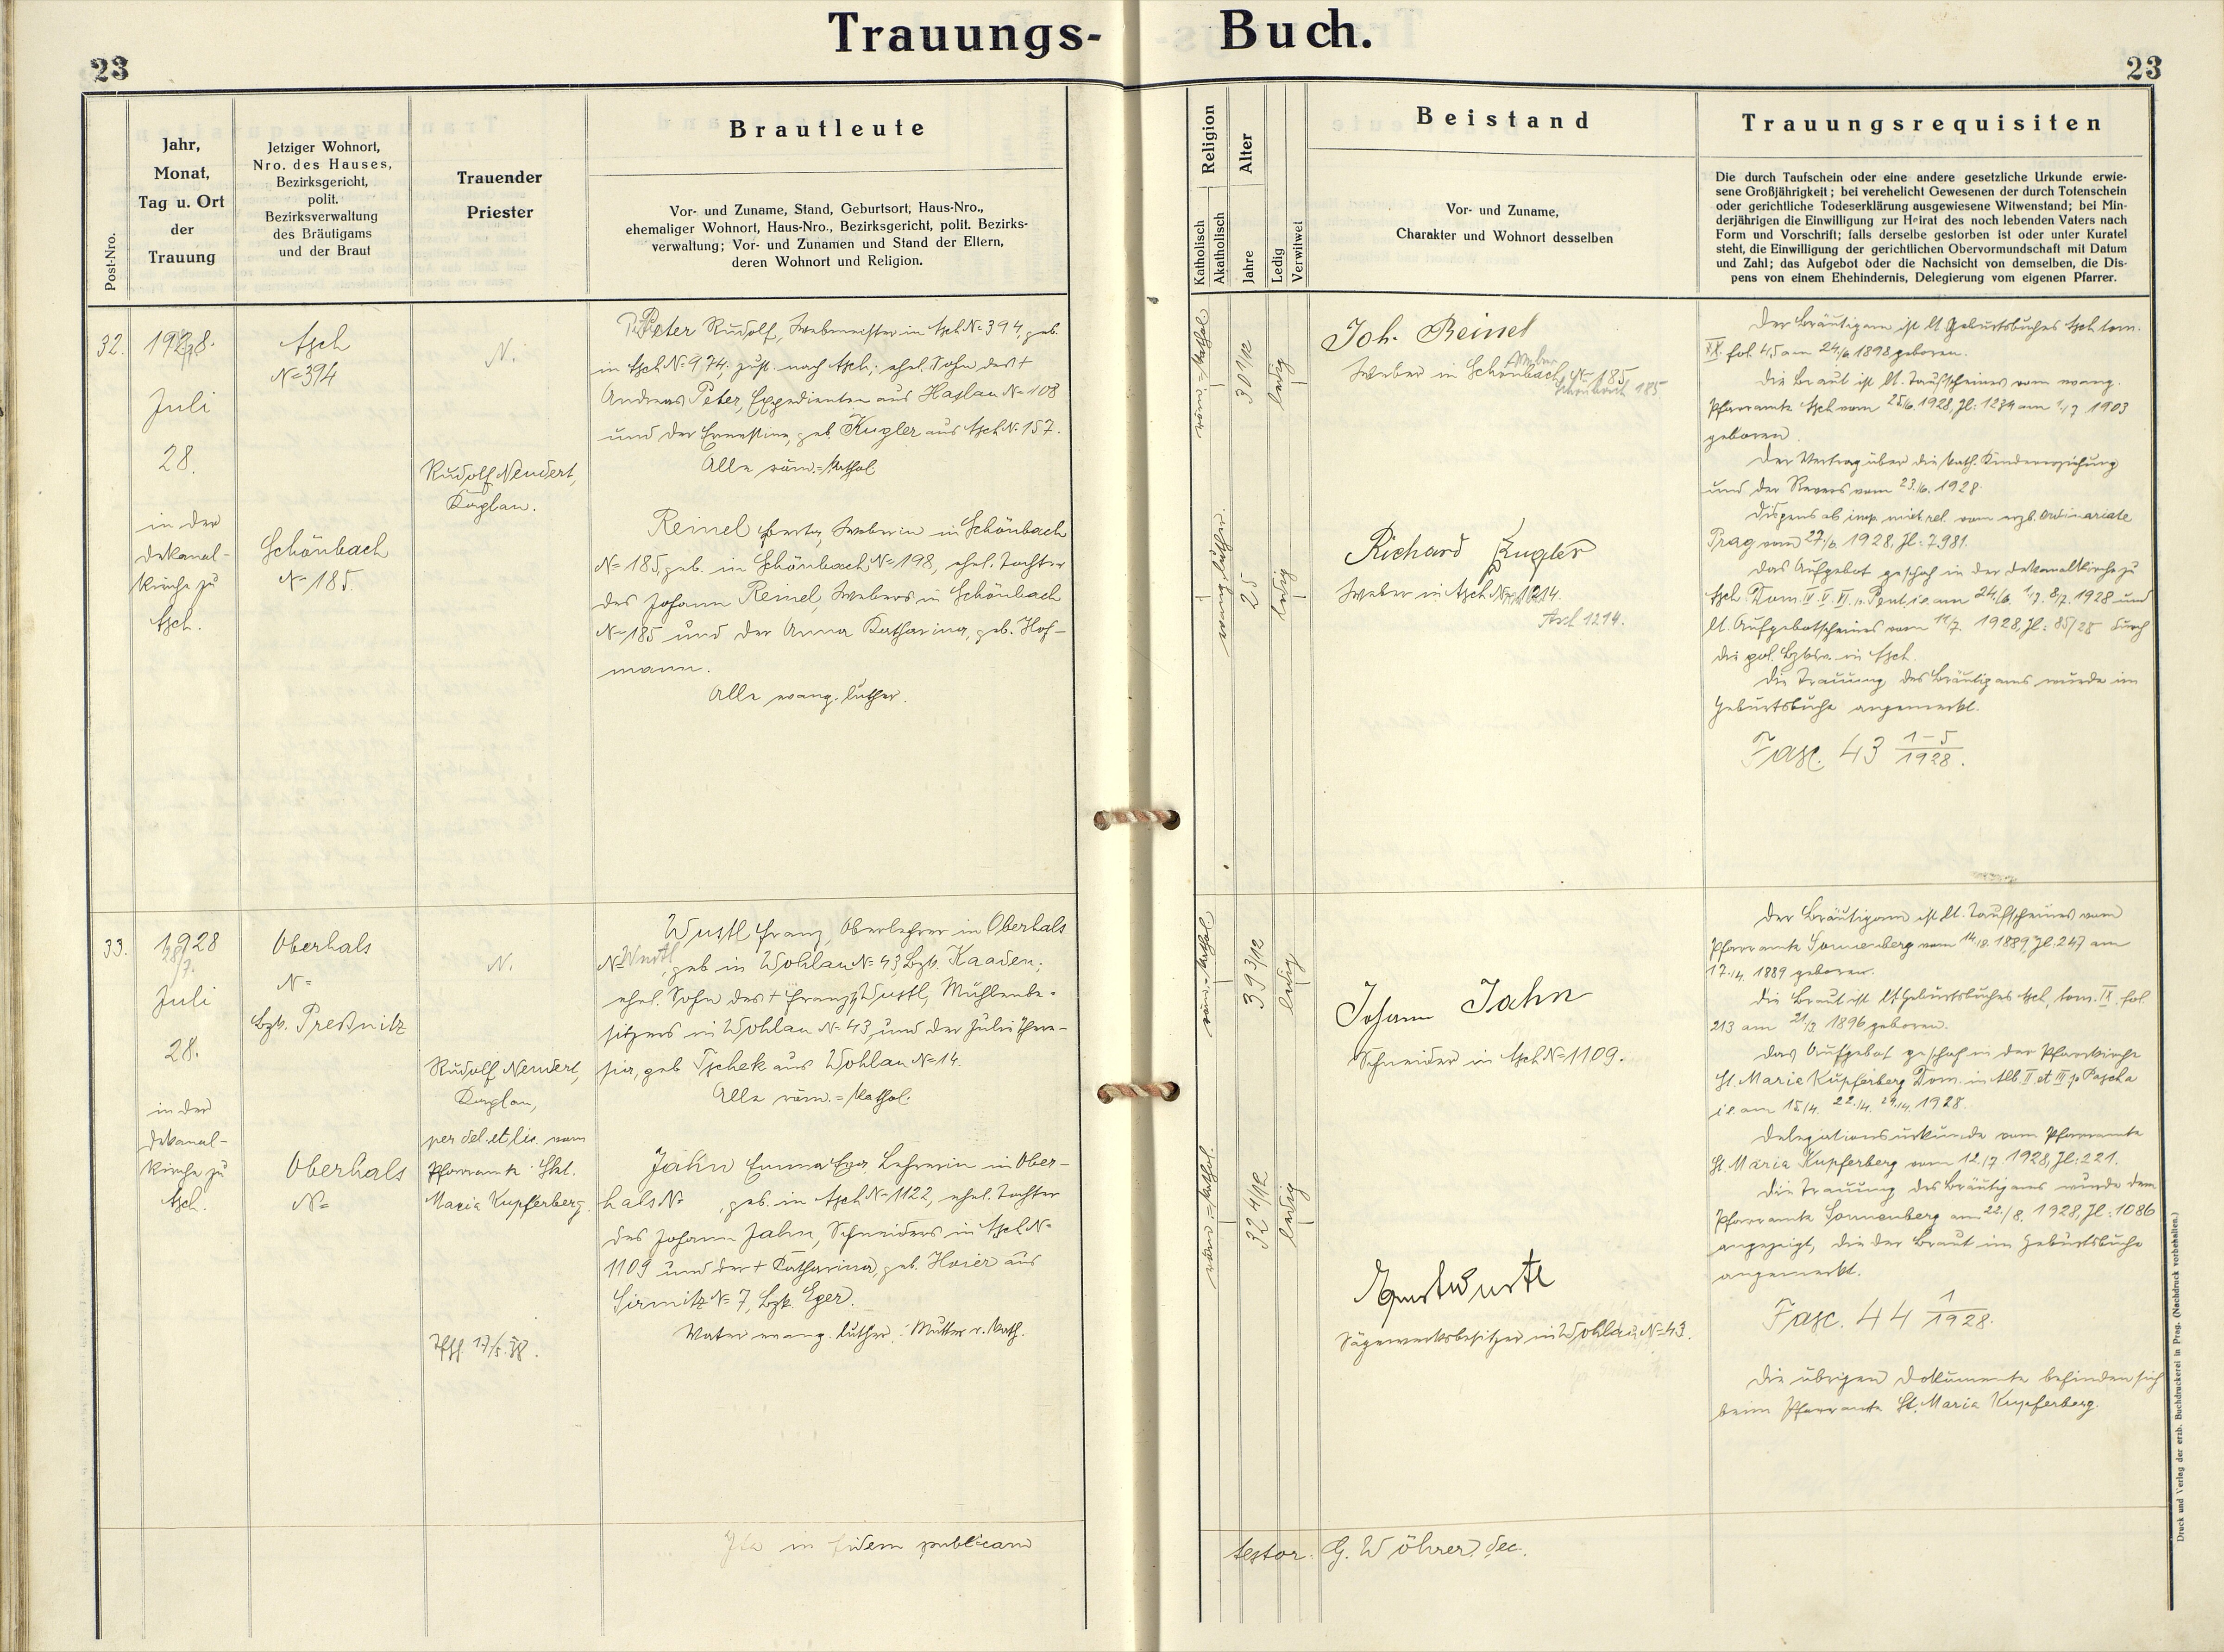 Trauungs- Buch.
23
23
Post-Nro.
Jahr,
Monat,
Tag u. Ort
der
Trauung
Jetziger Wohnort,
Nro. des Hauses,
Bezirksgericht,
polit.
Bezirksverwaltung
des Bräutigams
und der Braut
Trauender
Priester
Brautleute
Vor- und Zuname, Stand, Geburtsort, Haus-Nro.,
ehemaliger Wohnort, Haus-Nro., Bezirksgericht, polit. Bezirks-
verwaltung; Vor- und Zunamen und Stand der Eltern,
deren Wohnort und Religion.
Religion
Katholisch
Akatholisch
Alter
Jahre
Ledig
Verwitwet
Beistand
Vor- und Zuname,
Charakter und Wohnort desselben
Trauungsrequisiten
Die durch Taufschein oder eine andere gesetzliche Urkunde erwie-
sene Großjährigkeit; bei verehelicht Gewesenen der durch Totenschein
oder gerichtliche Todeserklärung ausgewiesene Witwenstand; bei Min-
derjährigen die Einwilligung zur Heirat des noch lebenden Vaters nach
Form und Vorschrift; falls derselbe gestorben ist oder unter Kuratel
steht, die Einwilligung der gerichtlichen Obervormundschaft mit Datum
und Zahl; das Aufgebot oder die Nachsicht von demselben, die Dis-
pens von einem Ehehindernis, Delegierung vom eigenen Pfarrer.
32.
1928.
Juli
28.
in der
Dekanal-
kirche zu
Asch.
Asch
N= 394
Schönbach
N= 185.
N.
Rudolf Neudert,
Kaplan.
Peter Rudolf, Webmeister in Asch N= 394, geb.
in Asch N= 974, zust. nach Asch; ehel. Sohn des †
Andreas Peter, Expedienten aus Haslau N= 108
und der Ernestine, geb. Kugler aus Asch N= 157.
Alle röm.=kathol.
Reinel Berta, Weberin in Schönbach
N= 185, geb. in Schönbach N= 198, ehel. Tochter
des Johann Reinel, Webers in Schönbach
N= 185 und der Anna Katharina, geb. Hof-
mann.
Alle evang. luther.
röm.=kathol.
30 1/12
ledig
evang. luther.
25
ledig
Joh. Reinel
Weber in Schönbach, N= 185
Schönbach 185
Richard Kugler
Weber in Asch N= 1214.
Asch 1214.
Der Bräutigam ist lt Geburtsbuches Asch tom.
XX. fol. 45 am 24./6. 1898 geboren.
Die Braut ist lt. Taufscheines vom evang.
Pfarramte Asch vom 25/6. 1928, Zl: 1234 am 1/7 1903
geboren.
Der Vertrag über die kath. Kindererziehung
und der Revers vom 23./6. 1928.
Dispens ab imp. mixt. rel. vom erzb. Ordinariate
Prag vom 27/6. 1928, Zl: 7981.
Das Aufgebot geschah in der Dekanalkirche zu
Asch. Dom. IV. V. VI. p. Pent. i.e. am 24./6. 1./7. 8./7. 1928 und
lt. Aufgebotscheines vom 11/7. 1928, Zl: 85/28 durch
die pol. Bzksv. in Asch.
Die Trauung des Bräutigams wurde im
Geburtsbuche angemerkt.
Fasc. 43 1-5/1928.
33.
1928
28/7.
Juli
28.
in der
Dekanal-
kirche zu
Asch.
Oberhals
N=
Bzk. Preßnitz
Oberhals
N=
N.
Rudolf Neudert,
Kaplan,
per del. et lic. vom
Pfarramte Skt.
Maria Kupferberg.
17/5. 38.
Wustl Franz, Oberlehrer in Oberhals
N= Wustl, geb in Wohlau N= 43, Bzk. Kaaden;
ehel. Sohn des † Franz Wustl, Mühlenbe-
sitzers in Wohlau N= 43, und der Julie There-
sia, geb Tschek aus Wohlau N= 14.
Alle röm.=kathol.
Jahn Emma Eva Lehrerin in Ober-
hals N= , geb. in Asch N= 1122, ehel. Tochter
des Johann Jahn, Schneiders in Asch N=
1109 und der † Katharina, geb. Hoier aus
Sirmitz N= 7, Bzk. Eger.
Vater evang. luther., Mutter r. kath.
röm.=kathol.
39 3/12
ledig
röm.=kathol.
32 4/12
ledig
Johann Jahn
Schneider in Asch N= 1109.
Ernst Wustl
Sägewerksbesitzer in Wohlau, N= 43.
Der Bräutigam ist lt. Taufscheines vom
Pfarramte Sonnenberg vom 14./8. 1889, Zl. 247 am
17./4. 1889 geboren.
Die Braut ist lt Geburtsbuches Asch, tom. IX. fol.
213 am 21/3 1896 geboren.
Das Aufgebot geschah in der Pfarrkirche
St. Maria Kupferberg Dom. in Alb. II. et III. p. Pascha
i.e. am 15/4. 22./4. 29./4. 1928.
Delegationsurkunde vom Pfarramte
St. Maria Kupferberg vom 12./7. 1928, Zl: 221.
Die Trauung des Bräutigams wurde dem
Pfarramte Sonnenberg am 22./8. 1928, Zl: 1086
angezeigt, die der Braut im Geburtsbuche
angemerkt.
Fasc. 44 1/1928.
Die übrigen Dokumente befinden sich
beim Pfarramte St. Maria Kupferberg.
Ita in fidem publicam
testor. G. Wöhrer, dec.
Druck und Verlag der erzb. Buchdruckerei in Prag. (Nachdruck vorbehalten.)